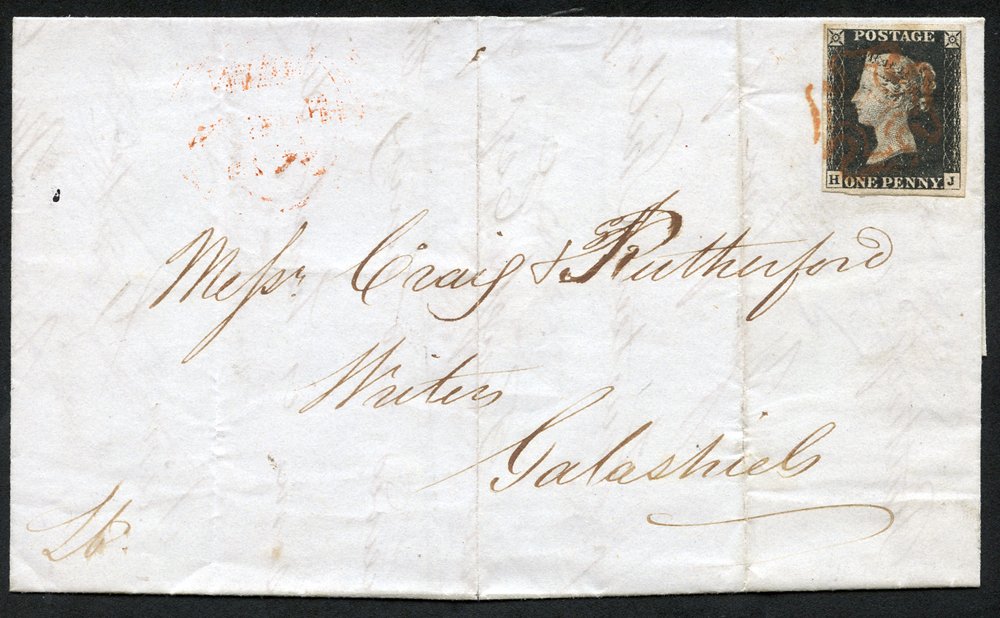 POSTAGE
H ONE PENNY J
Messrs Craig & Rutherford
Writers
Galashiels